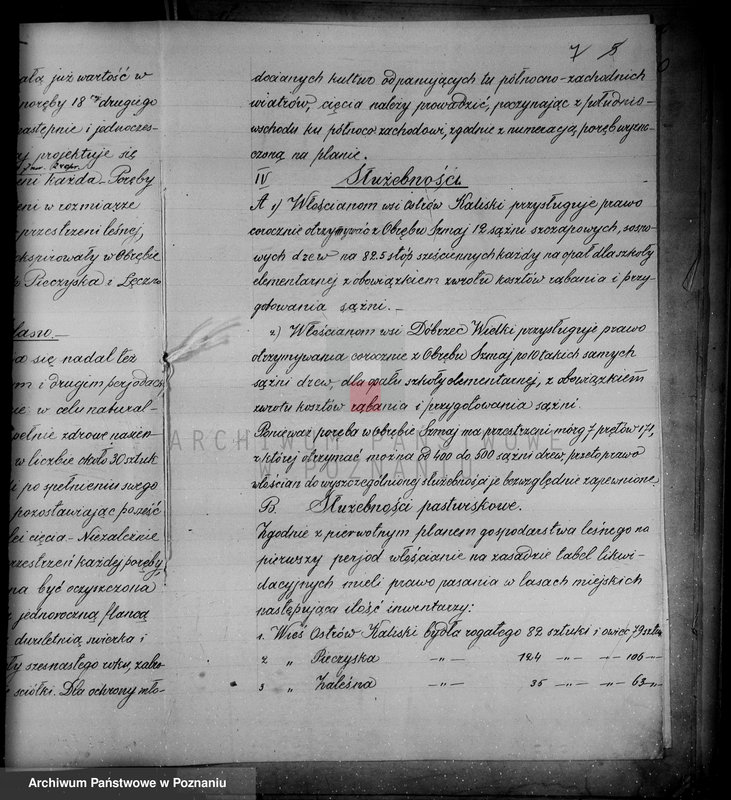 7 8
ała już wartość w
poręby 18ej drugiego
następnie i jednoczes-
projektuje się
każda Poręby
w rozmiarze
przestrzeni leśnej,
ekspirowały w Obrębie
Pieczyska i Łęczno
się nadal też
i drugim perjodach
w celu natural-
zdrowe nasien
w liczbie około 30 sztuk
po spełnieniu swego
pozostawiając po sześć
cięcia - Niezależnie
przestrzeń każdej poręby,
na być oczyszczona
jednoroczną flancą
dwuletnią świerka i
szesnastego roku, zabro
ściółki. Dla ochrony mło-
docianych kultur od panujących tu północno-zachodnich
wiatrów, cięcia należy prowadzić, poczynając z południo-
wschodu ku północo zachodowi, zgodnie z numeracją, poręb wyzna-
czoną na planie.
IV Służebności.
A 1) Włościanom wsi Ostrów Kaliski przysługuje prawo
corocznie otrzymywać z Obrębu Szmaj 12 sążni szczapowych, sosno-
wych drew na 82.5 stóp sześciennych każdy na opał dla szkoły
elementarnej z obowiązkiem zwrotu kosztów rąbania i przy-
gotowania sążni. -
2) Włościanom wsi Dóbrzec Wielki przysługuje prawo
otrzymywania corocznie z Obrębu Szmaj po 10 takich samych
sążni drew, dla opału szkoły elementarnej, z obowiązkiem
zwrotu kosztów rąbania i przygotowania sążni.
Ponieważ poręba w obrębie Szmaj ma przestrzeni mórg 7 prętów 171,
z której otrzymać można od 400 do 500 sążni drew, przeto prawo
włościan do wyszczególnionej służebności je bezwzględnie zapewnione.
B. Służebności pastwiskowe.
Zgodnie z pierwotnym planem gospodarstwa leśnego na
pierwszy perjod włościanie na zasadzie tabel likwi-
dacyjnych mieli prawo pasania w lasach miejskich
następująca ilość inwentarzy:
1. Wieś Ostrów Kaliski bydła rogatego 82 sztuki i owiec 79 sztuk
2 „ Pieczyska -„- 124 -„- -„- 106 -„-
3 „ Zaleśna -„- 35 -„- -„- 63 -„-
ARCHIWUM PAŃSTWOWE
W POZNANIU
Archiwum Państwowe w Poznaniu